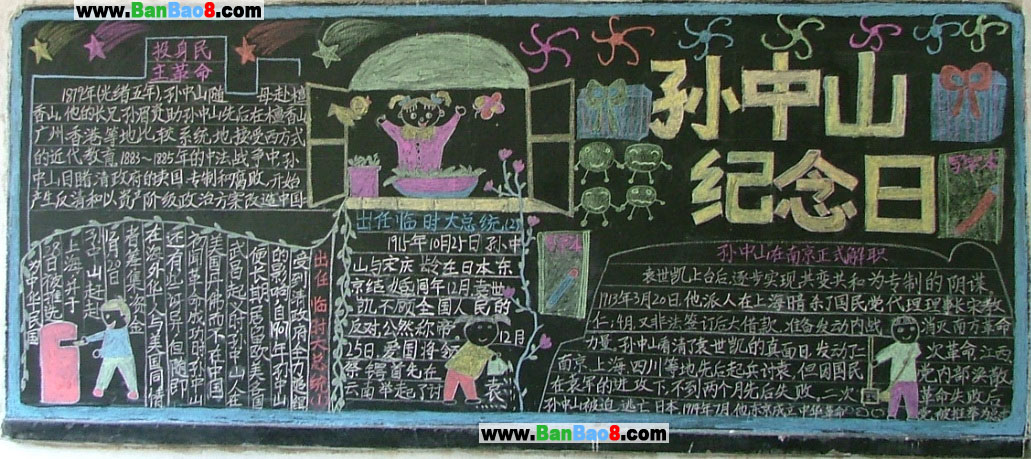 www.BanBao8.com
投身民
主革命
1879年(光绪五年),孙中山随 母赴檀
香山,他的长兄孙眉资助孙中山先后在檀香山
广州香港等地比较系统地接受西方式
的近代教育.1883~1885年的中法战争中孙
中山目睹清政府的卖国专制和腐败,开始
产生反清和以资产阶级政治方案改造中国
孙中山
纪念日
出任临时大总统(2)
1915年10月25日孙中
山与宋庆龄在日本东
京结
同年12月袁世
凯不顾全国人民的
反对公然称帝
12月
25日,爱国将领
蔡锷首先在
云南举起了讨
袁
出任临时大总统
受到清政府全力追缉
的影响,自1907年
便长期居留欧美各国
武昌起义时孙中山人在
美国丹佛不在中国
初闻革命成功时,孙中山
还有
讶异,但随即
在海外华人与美国同情
者筹集
资金
上海,并于
为中华民国
孙中山在南京正式解职
袁世凯上台后逐步实现共变共和为专制的阴谋
1913年3月20日,他派人在上海暗杀了国民党代理理事长宋教
仁;4月,又非法签订后大借款,准备发动内战,消灭南方革命
力量.孙中山看清了袁世凯的真面目,发动了二次革命,江西
南京上海四川等地先后起兵讨袁,但因国民党内部涣散
在袁军的进攻下,不到两个月先后失败,二次革命失败后
孙中山被迫逃亡日本,1914年7月,他东京成立中华革命
www.BanBao8.com